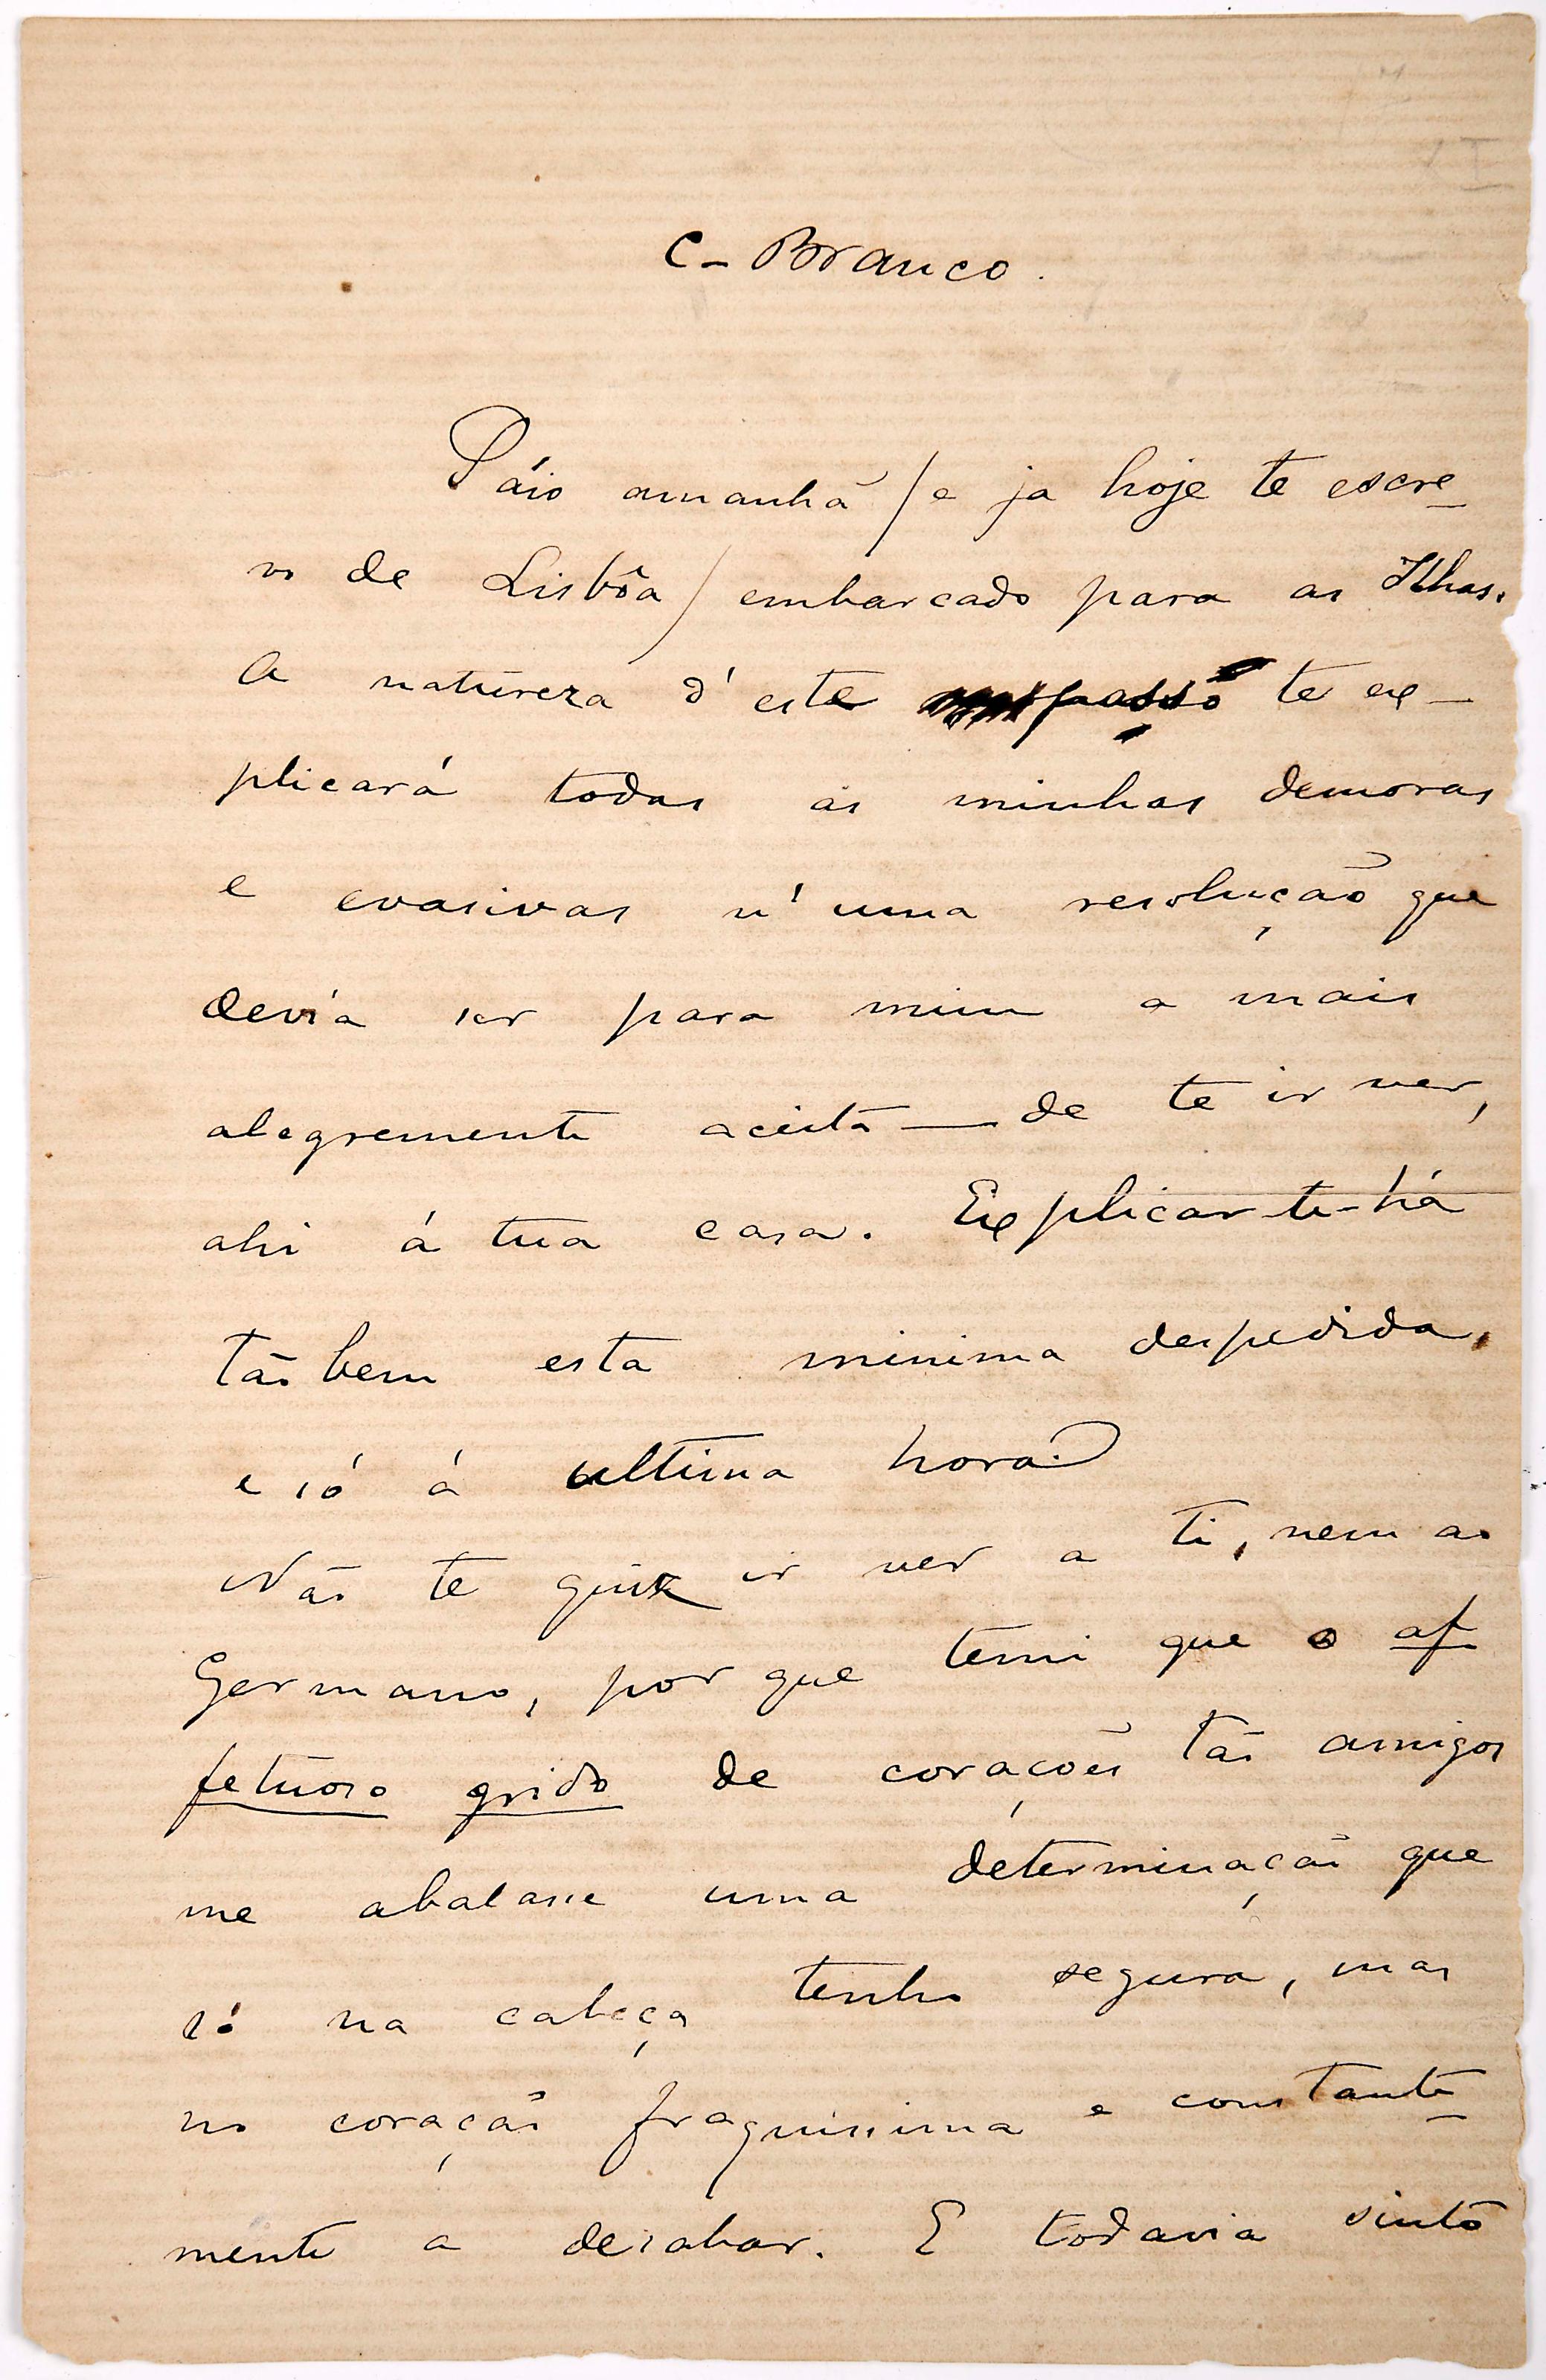 C– Branco.
Sáio amanhã / e ja hoje te escre-
vo de Lisbôa / embarcado para as Ilhas.
A natureza d'este passo te ex-
plicará todas as minhas demoras
e evasivas n'uma resolução que
devia ser para mim a mais
alegremente aceita — de te ir ver,
ahi á tua casa. Explicar-te-há
tão bem esta minima despedida,
e só á ultima hora.
Não te quiz ir ver a ti, nem ao
Germano, por que temi que o af-
fetuoso grido de corações tão amigos
me abalasse uma determinação que
só na cabeça tenho segura, mas
no coração fraquissima e constante-
mente a desabar. E todavia sinto